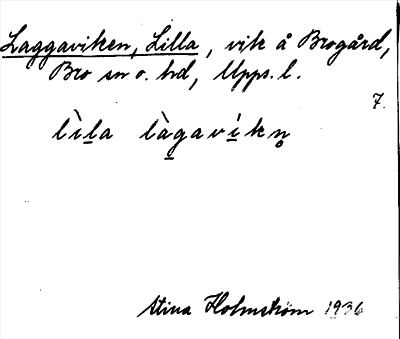 Laggaviken, Lilla, vik å Brogård,
Bro sn o. hd, Upps. l.
7.
lìl̠a làg̠aví̠kn̥
Stina Holmström 1936